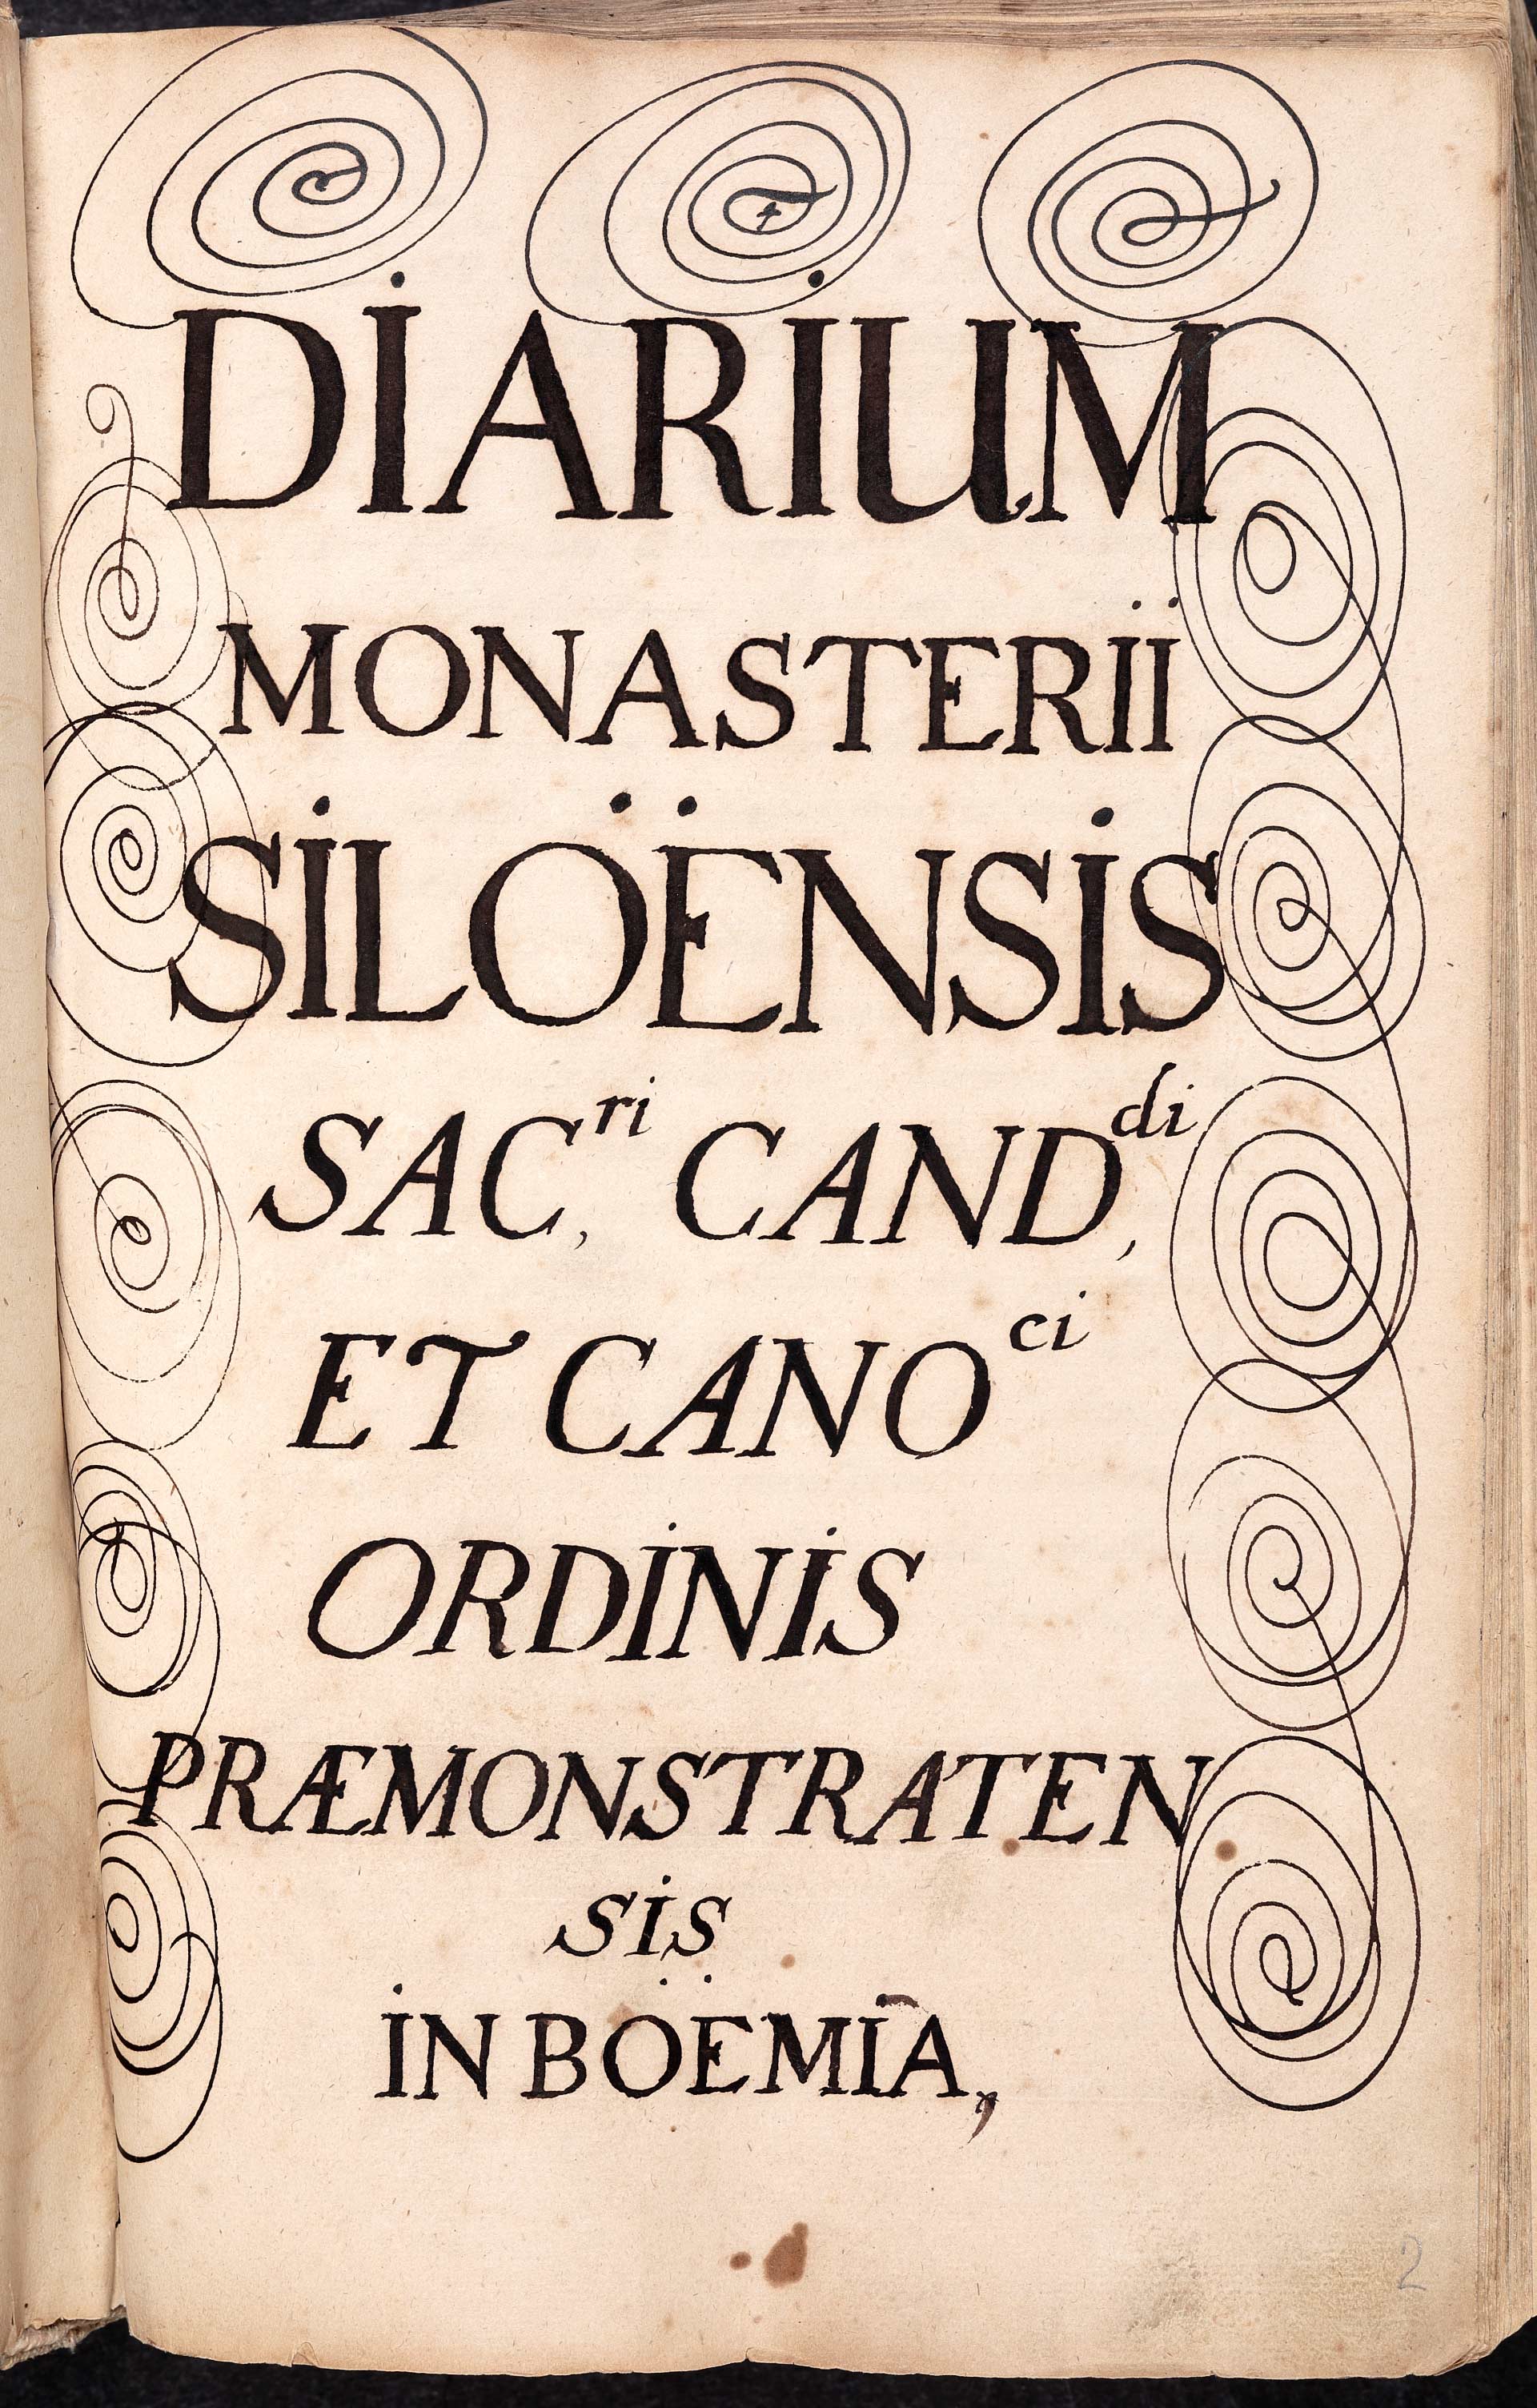 DİARİUM
MONASTERİİ
SİLÖËNSİS
SAC,ri CAND,di
ET CANOci
ORDİNİS
PRÆMONSTRATEN
SİS
İN BÖËMİA,
2